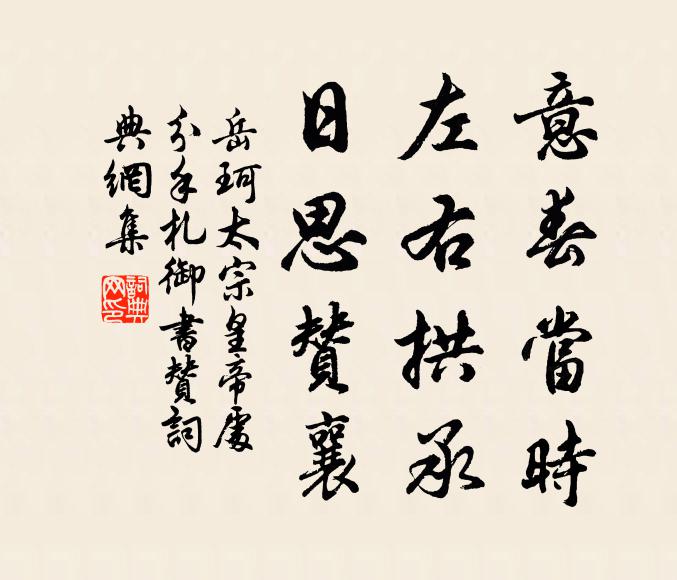 意春當時
左右拱承
日思贊襄
岳珂太宗皇帝處
分手札御書贊詞
典網集
詞典網印